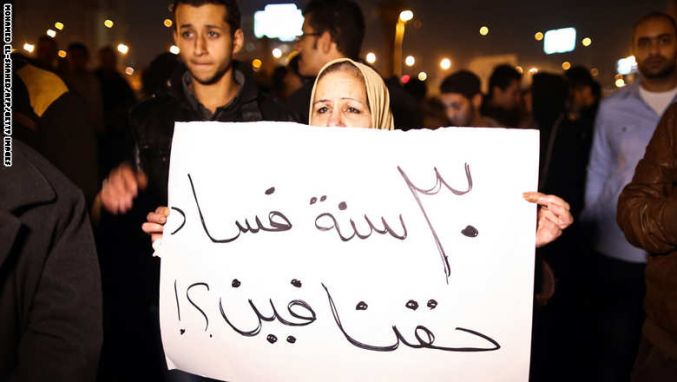 ٣٠ سنة فساد
حقنا فين؟!
MOHAMED EL-SHAHED/AFP/AFP/GETTY IMAGES